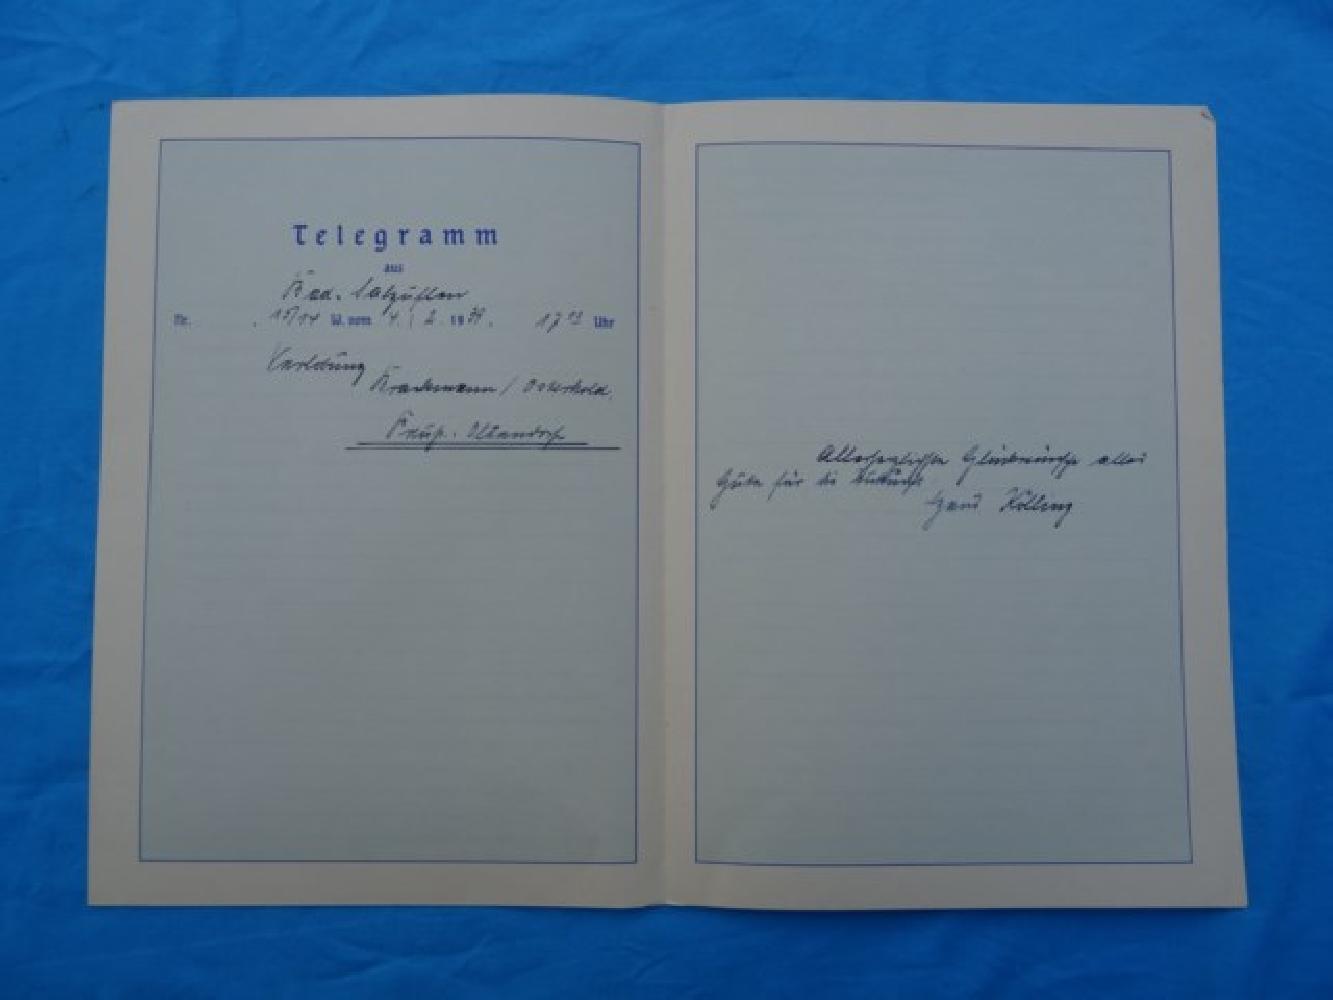 Telegramm
aus
Bad. Salzuflen
Nr. 15/14 W. vom 4. 2. 1939. 17 Uhr
Verlobung
/ Osterhold.
Preuß. Oldendorf
Allerherzlichste Glückwünsche alles
Gute für die Zukunft
Kölling